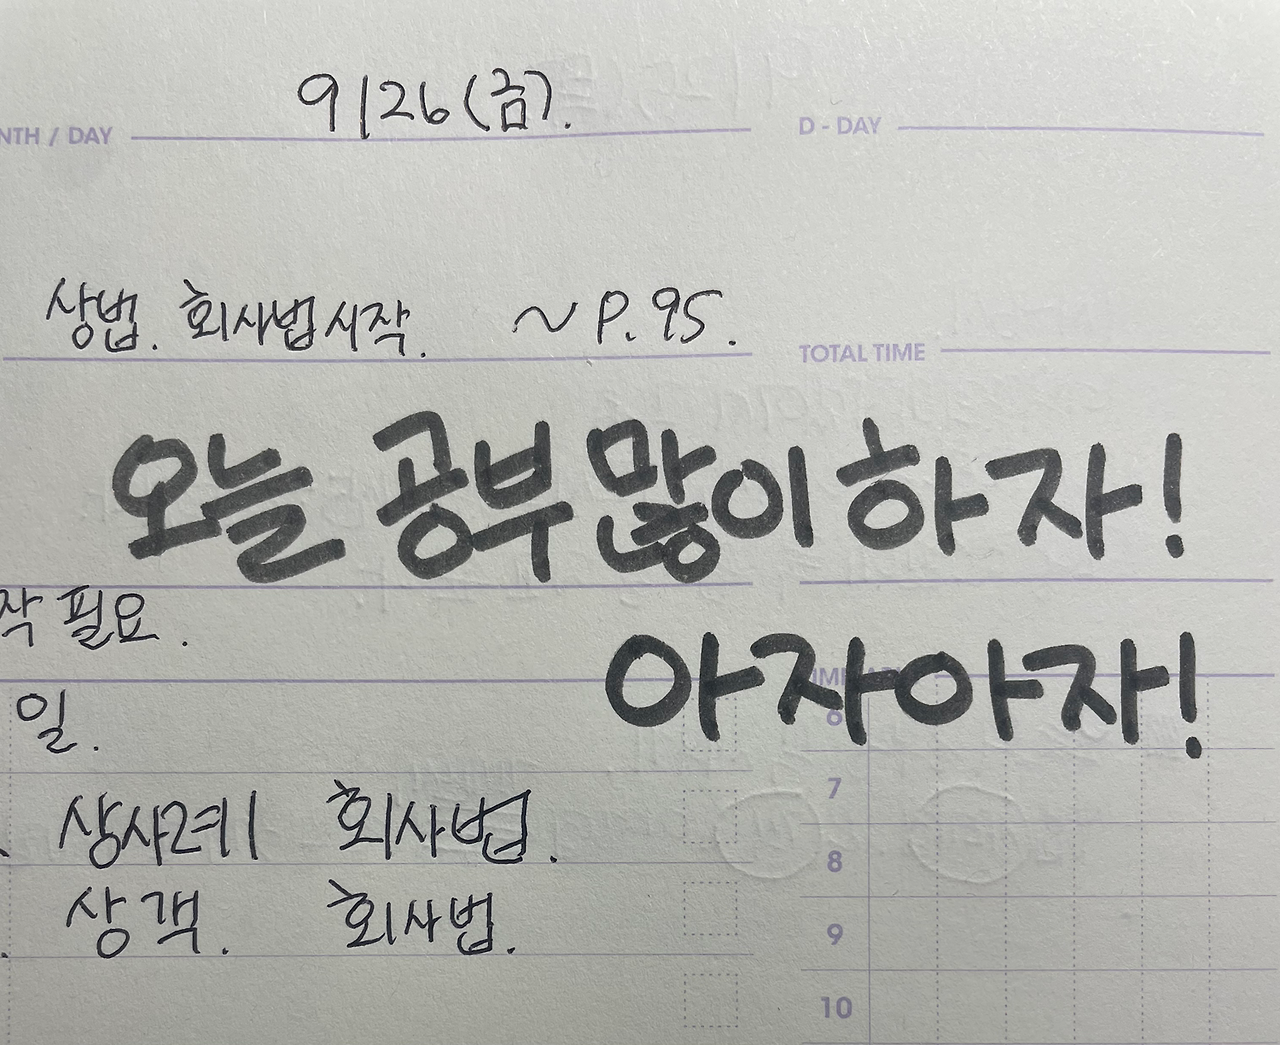 9/26(금).
NTH / DAY
D - DAY
상법. 회사법시작. ~P.95.
TOTAL TIME
오늘 공부 많이 하자!
작 필요.
아자아자!
6
일.
7
상사례 회사법.
8
상객. 회사법.
9
10